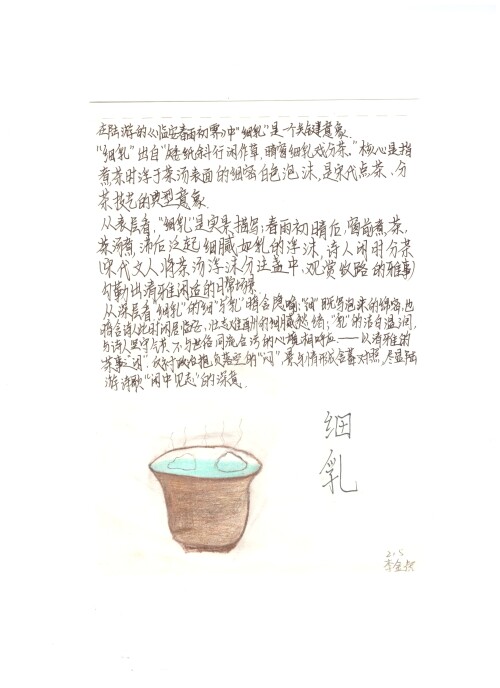 在陆游的《临安春雨初霁》中"细乳"是一个关键意象.
"细乳"出自"矮纸斜行闲作草,晴窗细乳戏分茶。"核心是指
煮茶时浮于茶汤表面的细密白色泡沫,是宋代点茶、分
茶技艺的典型意象.
从表层看,"细乳"是实景描写:春雨初晴后,窗前煮茶,
茶汤煮沸后泛起细腻如乳的浮沫,诗人闲时分茶
(宋代文人将茶汤浮沫分注盏中、观赏纹路的雅事)
勾勒出清雅闲适的日常场景
从深层看"细乳"的"细"与"乳"暗含隐喻:"细"既写泡沫的绵密,也
暗含诗人此时闲居临安、的细腻愁绪;"乳"的洁白温润,
与诗人坚守气节、不与世俗同流合污的心境相呼应.——以清雅的
茶事"闲".反衬政治抱负落空的"闷".景与情形成含蓄对照,尽显陆
游诗歌"闲中见志"的深意.
细
乳
2.5
李金